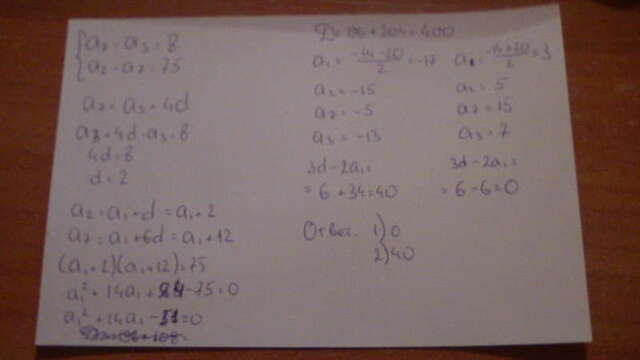 a₇ - a₃ = 8
a₂ · a₇ = 75
a₇ = a₃ + 4d
a₃ + 4d - a₃ = 8
4d = 8
d = 2
a₂ = a₁ + d = a₁ + 2
a₇ = a₁ + 6d = a₁ + 12
(a₁ + 2)(a₁ + 12) = 75
a₁² + 14a₁ + 24 - 75 = 0
a₁² + 14a₁ - 51 = 0
D = 196 + 204 = 400
a₁ = (-14-20)/2 = -17
a₂ = -15
a₇ = -5
a₃ = -13
3d - 2a₁ =
= 6 + 34 = 40
a₁ = (-14+20)/2 = 3
a₂ = 5
a₇ = 15
a₃ = 7
3d - 2a₁ =
= 6 - 6 = 0
Ответ. 1) 0
2) 40